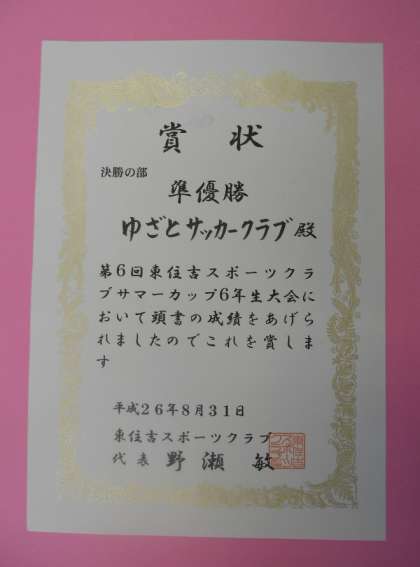 賞状
決勝の部
準優勝
ゆざとサッカークラブ殿
第6回東住吉スポーツクラ
ブサマーカップ6年生大会に
おいて頭書の成績をあげら
れましたのでこれを賞しま
す
平成26年8月31日
東住吉スポーツクラブ
代表 野瀬 敏